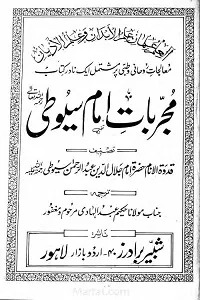 معالجات روحانی و طبی پر مشتمل ایک نادر کتاب
مجربات امام سیوطی
تصنیف
قدوۃ الانام حضرت امام جلال الدین عبدالرحمن سیوطی
ترجمہ
جناب مولانا حکیم عبدالہادی مرحوم و مغفور
ناشر
شبیر برادرز ۴۰۔ اردو بازار لاہور